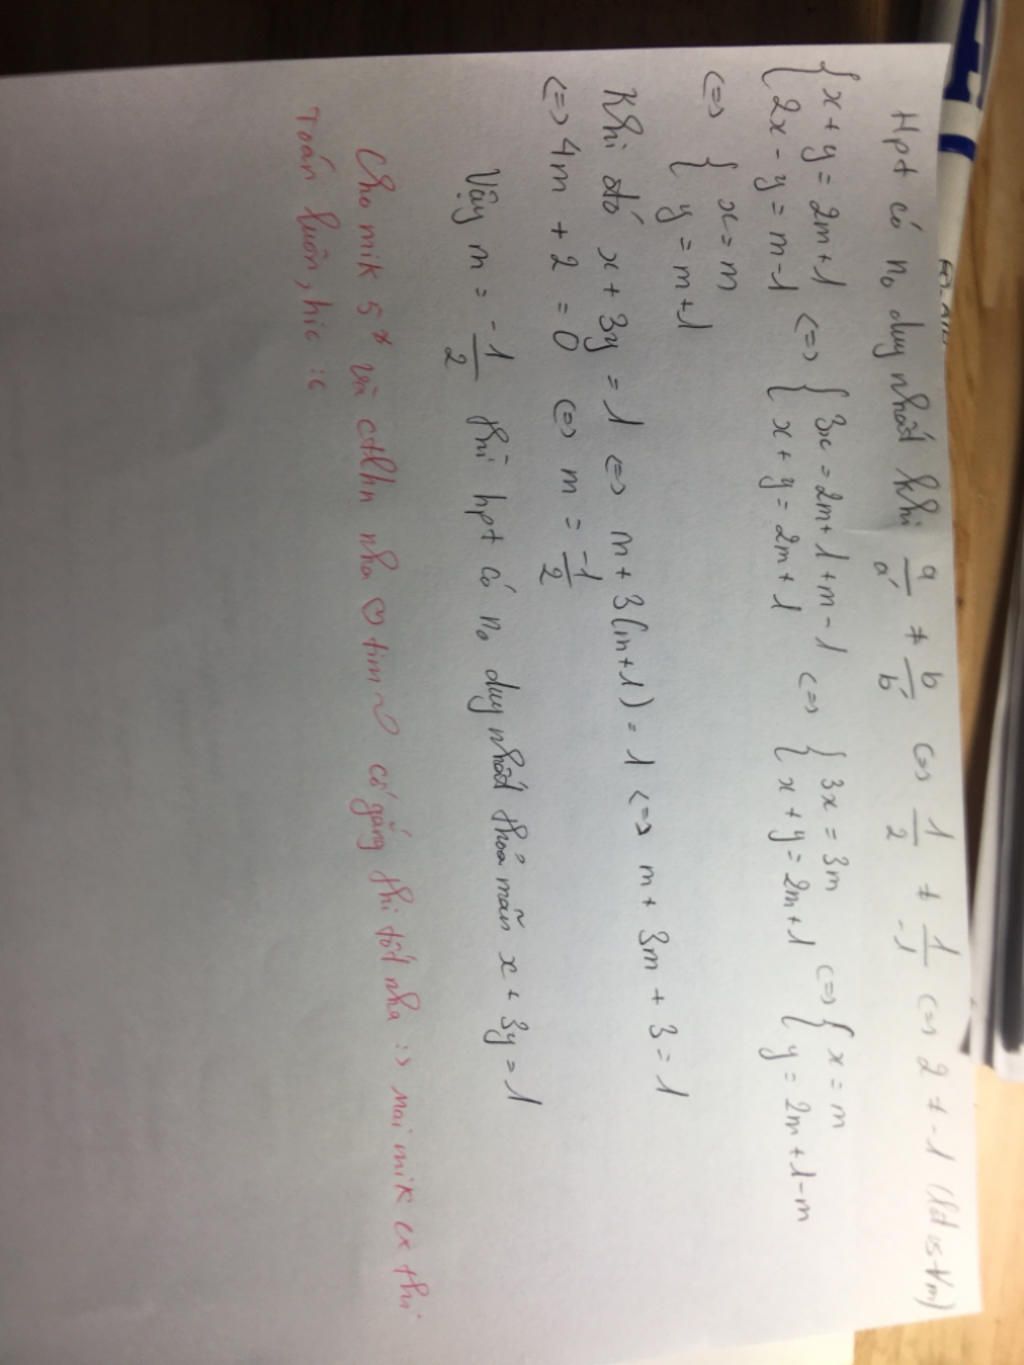 Hpt có n₀ duy nhất khi a/a' ≠ b/b' <=> 1/2 ≠ 1/-1 <=> 2 ≠ -1 (lđ ∀m)
{ x + y = 2m + 1 <=> { 3x = 2m + 1 + m - 1 <=> { 3x = 3m <=> { x = m
{ 2x - y = m - 1 { x + y = 2m + 1 { x + y = 2m + 1 { y = 2m + 1 - m
<=> { x = m
{ y = m + 1
Khi đó x + 3y = 1 <=> m + 3(m + 1) = 1 <=> m + 3m + 3 = 1
<=> 4m + 2 = 0 <=> m = -1/2
Vậy m = -1/2 thì hpt có n₀ duy nhất thoả mãn x + 3y = 1
Cho mik 5* và ctlhn nha ♡ tim ~ cố gắng thi tốt nha :> Mai mik cx thi
Toán luôn, hic :c